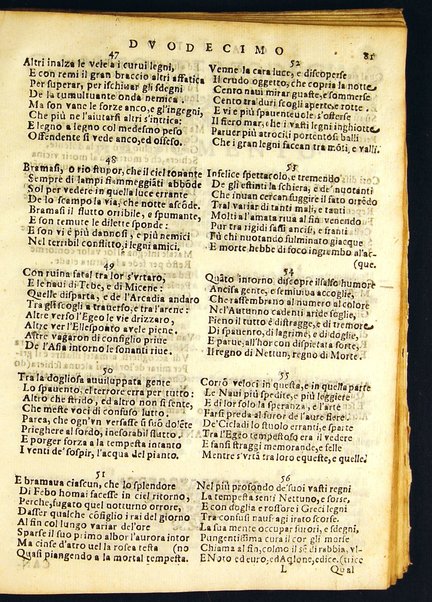 DVODECIMO
81
47
Altri inalza le vele a i curui legni,
E con remi il gran braccio altri affatica
Per superar, per ischiuar gli sdegni
De la tumultuante onda nemica.
Ma son vane le forze anco, e gl'ingegni,
Che più ne l'aiutarsi altri s'intrica:
E legno a legno col medesmo peso
Offendente si vede anco, ed offeso.
48
Bramasi, o rio stupor, che il ciel tonante
Sempre di lampi smmeggiāti abbōde
Sol per vedere in quella luce errante
De lo scampo la via, che notte ascōde.
Bramasi il flutto orribile, e spumante,
E son temute le dilette sponde:
E son vi è più dannosi, e più nemici
Nel terribil conflitto, i legni amici.
49
Con ruina fatal tra lor s'vrtaro,
E le naui di Tebe, e di Micene:
Quelle disparta, e de l'Arcadia andaro
Tra gli scogli a trauerso, e tra l'arene:
Altre verso l'Egeo le vie drizzaro,
Altre ver l'Ellesponto auele piene,
Altre vagaron di coniglio priue
De l'Asia intorno le sonanti riue.
50
Tra la dogliosa auuiluppata gente
Lo spauento, el terrore erra per tutto:
Altro che strido, ed altro non si sente,
Che meste voci di confuso lutto.
Parea, che ogn'vn versasse il suo dolēte
Prieghere al sordo, inesorabil flutto:
E porger forza a la tempesta intanto
I venti de'sospir, l'acqua del pianto.
51
E bramaua ciascun, che lo splendore
Di Febo homai facesse in ciel ritorno,
Perche, fugato quel notturno orrore,
Dasser qualche consiglio i rai del giorno
Al fin col lungo variar del'ore
Sparse il suo primo albor l'aurora intor
Ma cinse d'atro uel la rosea testa (no
Quasi piangendo a la mortal tempesta.
52
Venne la cara luce, e discoperse
Il crudo oggetto, che copria la notte
Cento naui mirar guaste, e sommerse
Cento tra duri scogli aperte, e rotte.
E vi è più spauenteuole s'offerse
Il fiero mar, che i vasti legni inghiotte
Paruer più atroci i portentosi balli
Che i gran legni faccean tra mōti, e valli.
53
Infelice spettacolo, e tremendo
De gli estinti la schiera, e de'nuotanti
Che inuan cercan fuggire il fato orrēdo
Tra variar di tanti mali, e tanti
Molti a l'amata riua al fin venendo
Pur tra rigidi sassi ancisi, e franti
Fù chi nuotando fulminato giacque
E morte hebbe di foco ingrembo al'ac-
(que.
54
Quāto intorno discopre il salso humore
Ancisa gente, e semiuiua accoglie,
Che rassembrano al numero al colore
Nel'Autunno cadenti aride foglie,
Pieno il tutto è di stragge, e di tremore
Di spauento, di lagrime, e di doglie,
E parue, all'hor con dispietata sorte,
Il regno di Nettun, regno di Morte.
55
Corrō veloci in questa, e in quella parte
Le Naui più spedite, e più leggiere
E di lor solo la speranza, e l'arte
Farsi preda al furor de l'aure fiere.
De'Cicladi lo stuolo erranti, e sparte
Tra l'Egeo tempestoso era il vedere
E sansi stragge memorande, e felle
Mentre s'vrtā tra loro equeste, e quelle.
56
Nel più profondo de'suoi vasti regni
La tempesta sentì Nettuno, e sorse,
E con doglia e rossore i Greci legni
Tra confusi naufragi irato scorse.
La sua mente occupar furori, e sdegni,
Pungentissima cura il cor gli morse
Chiama al fin, colmo il sē di rabbia, vl-
E Noto ed euro, ed Aqlone, e dice. (trice
L
Qual